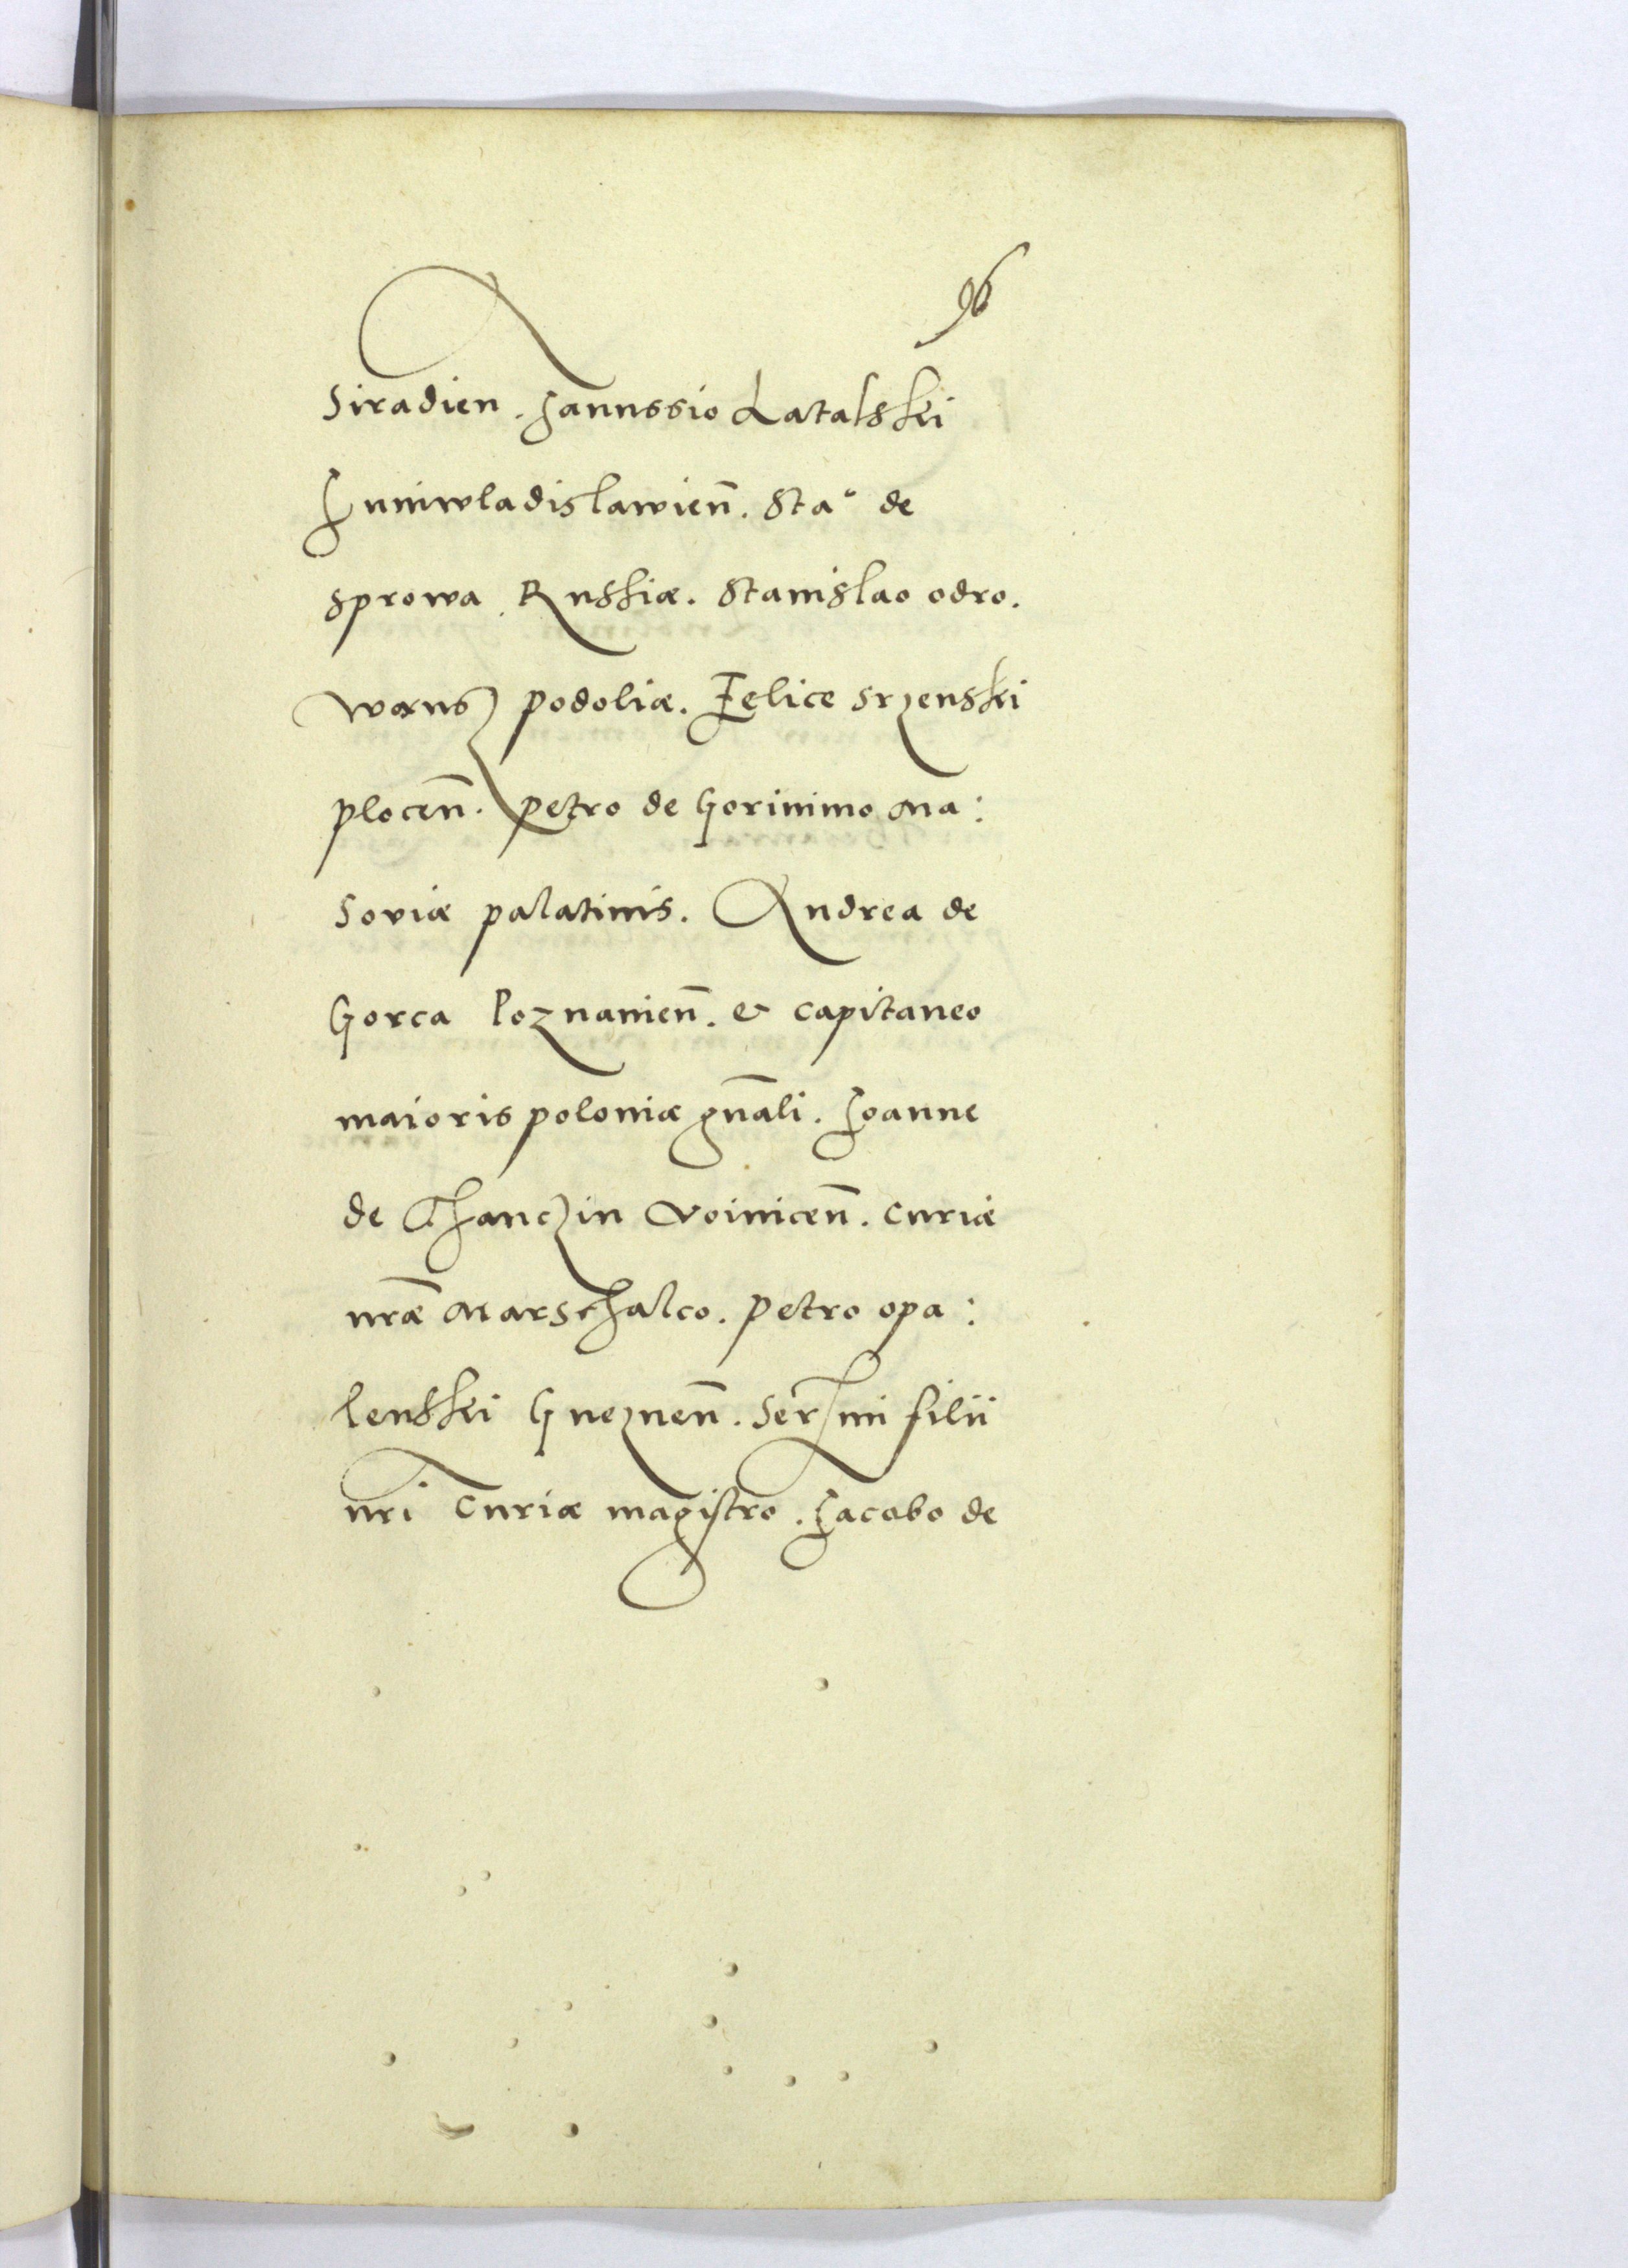 96
Siradien. Janussio Latalski
Juniwladislawien̄. Sta° de
Sprowa. Russiæ. Stanislao odro.
wansz podoliæ. Felice Srzenski
plocen̄. petro de Gorinimo Ma:
soviæ palatinis. Andrea de
Gorca Poznanien̄. & capitaneo
maioris poloniæ gn̄ali. Joanne
de Thanczin Voinicen̄. curiæ
nr̄æ Marschalco. petro opa:
lenski Gneznen̄. Serm̄i filii
nr̄i Curiæ magistro. Jacobo de